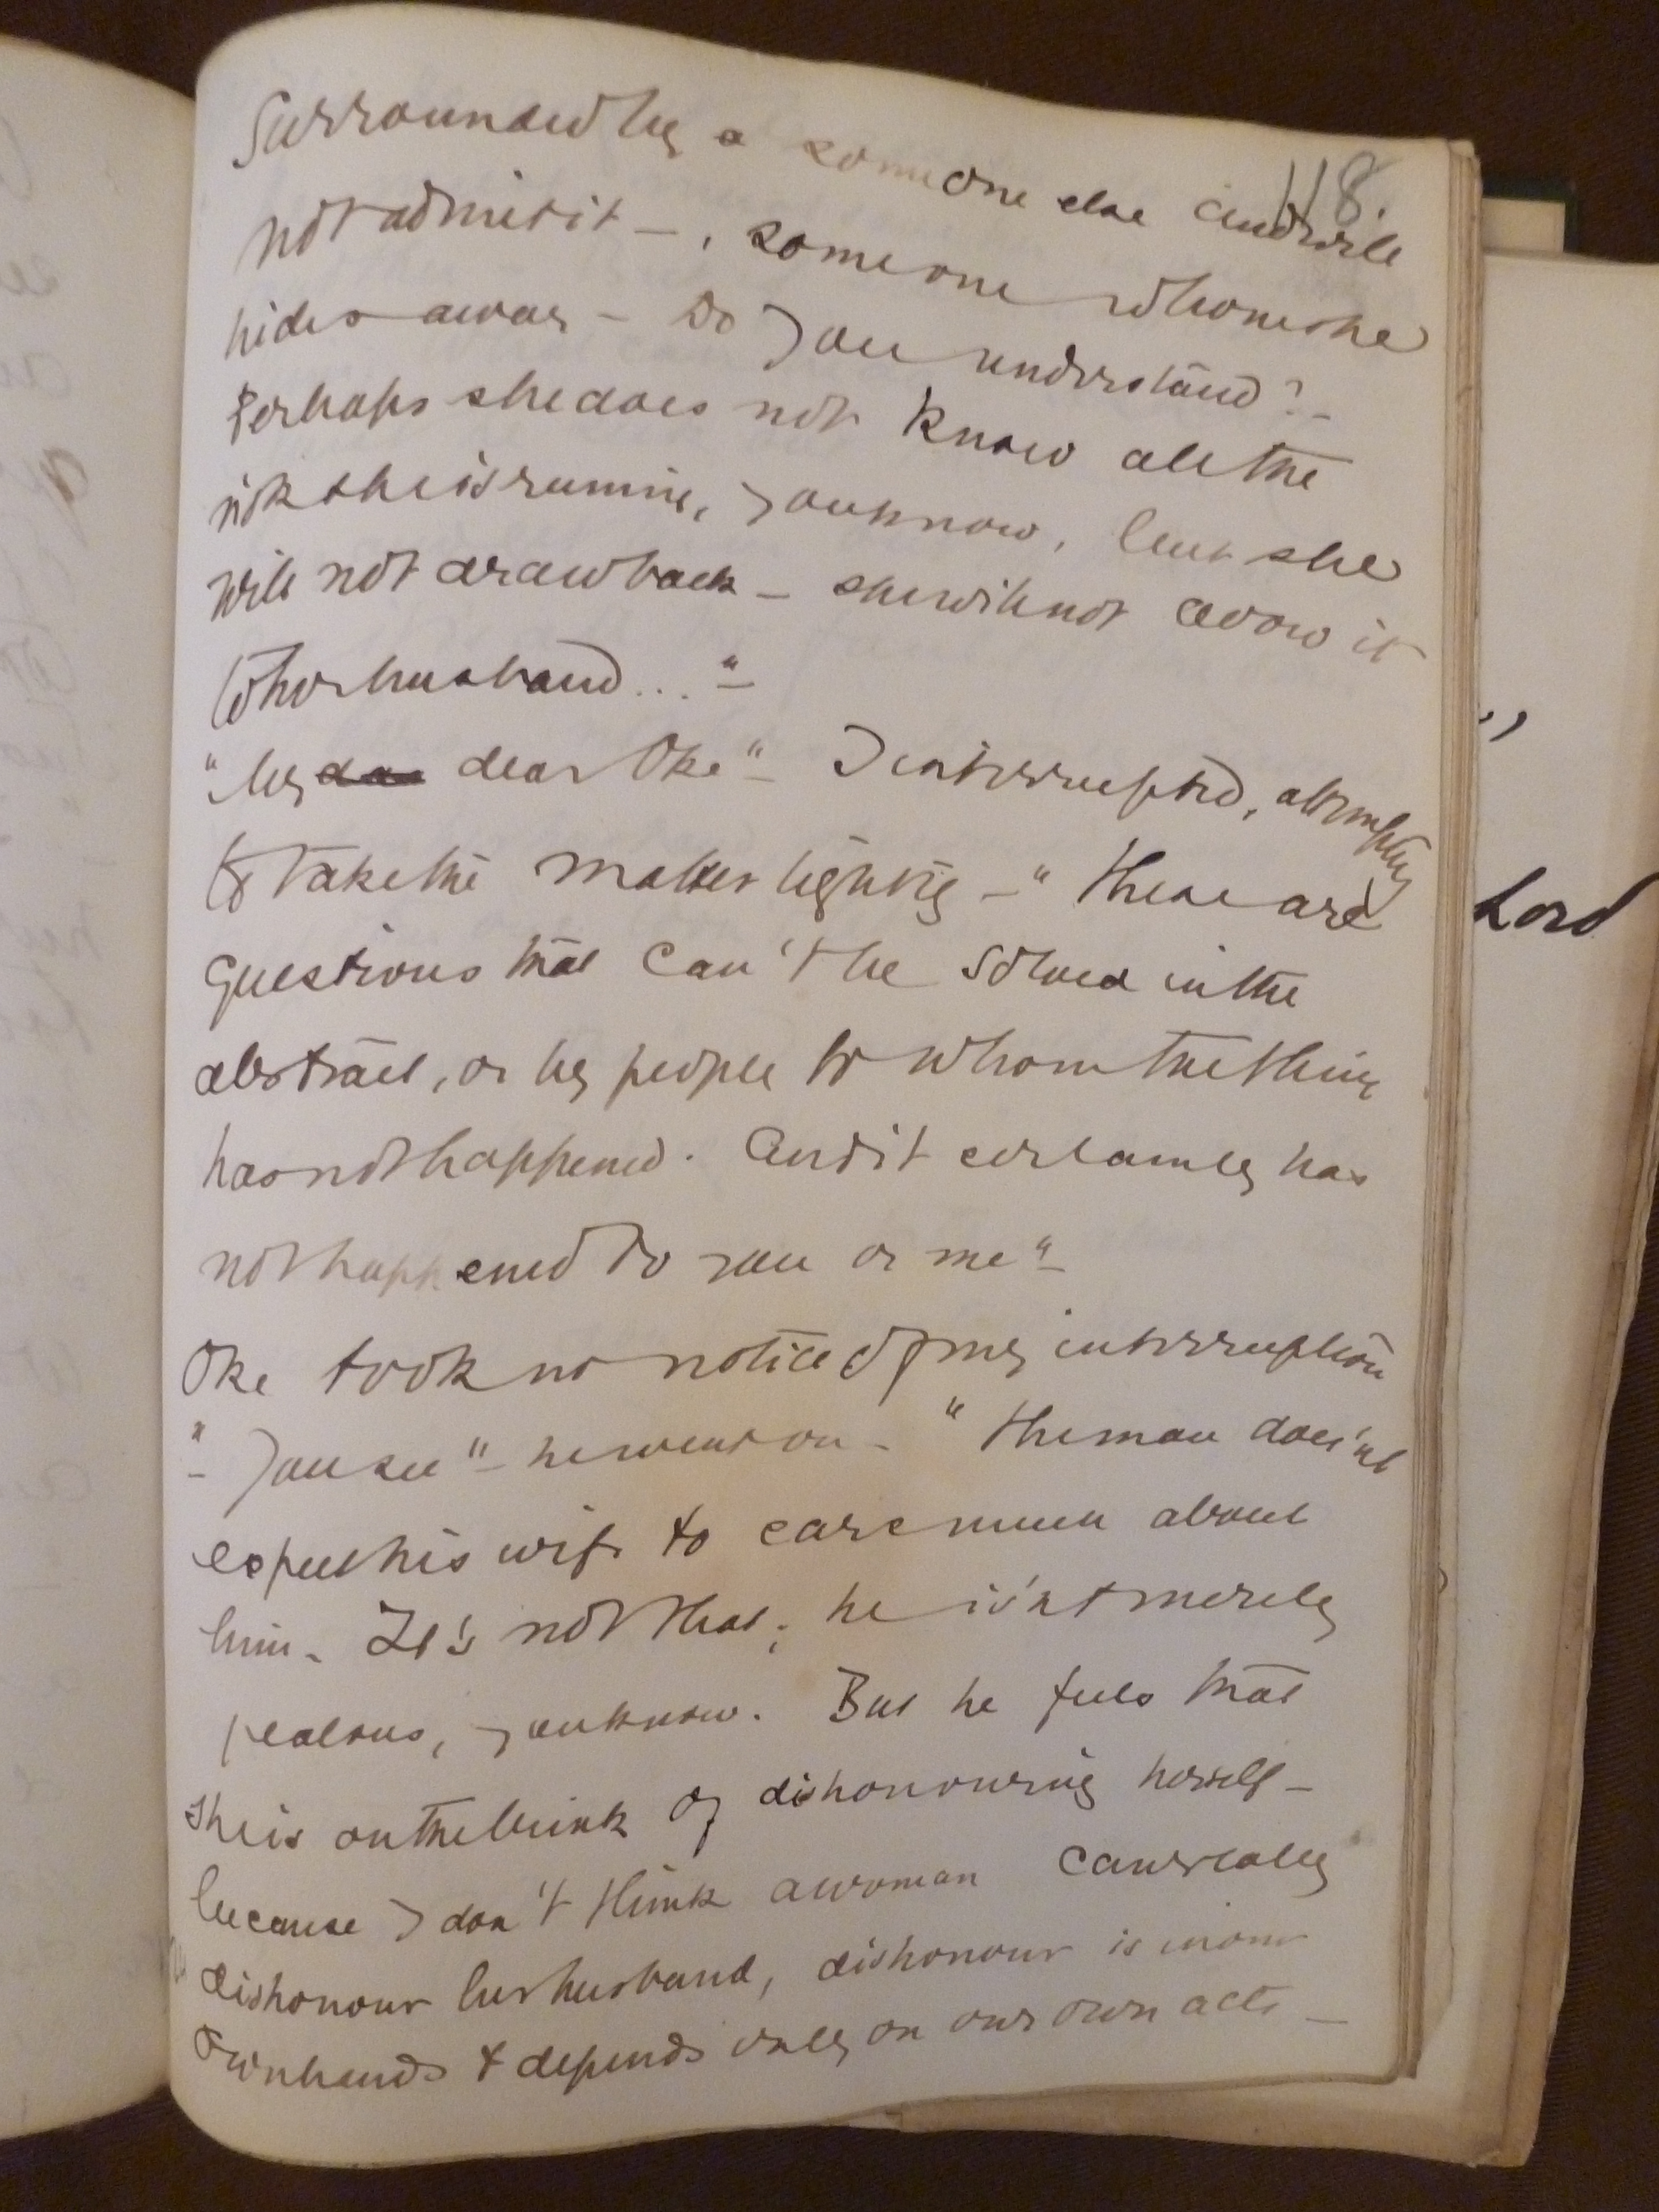 118.
Surrounded by a someone else and will
not admit it — , someone whom she
hides away — Do you understand? —
Perhaps she does not know all the
risk she is running, you know, but she
will not draw back — she will not avow it
to her husband ... " —
"My dear Oke" — I interrupted, attempting
to take the matter lightly — "these are
questions that can't be solved in the
abstract, or by people to whom the thing
has not happened. And it certainly has
not happened to you or me" —
Oke took no notice of my interruption
— "You see" — he went on — "the man does'nt
expect his wife to care much about
him — It's not that; he is'nt merely
jealous, you know. But he feels that
she is on the brink of dishonouring herself —
because I don't think a woman can really
dishonour her husband, dishonour is in our
own hands & depends only on our own acts —
Lord